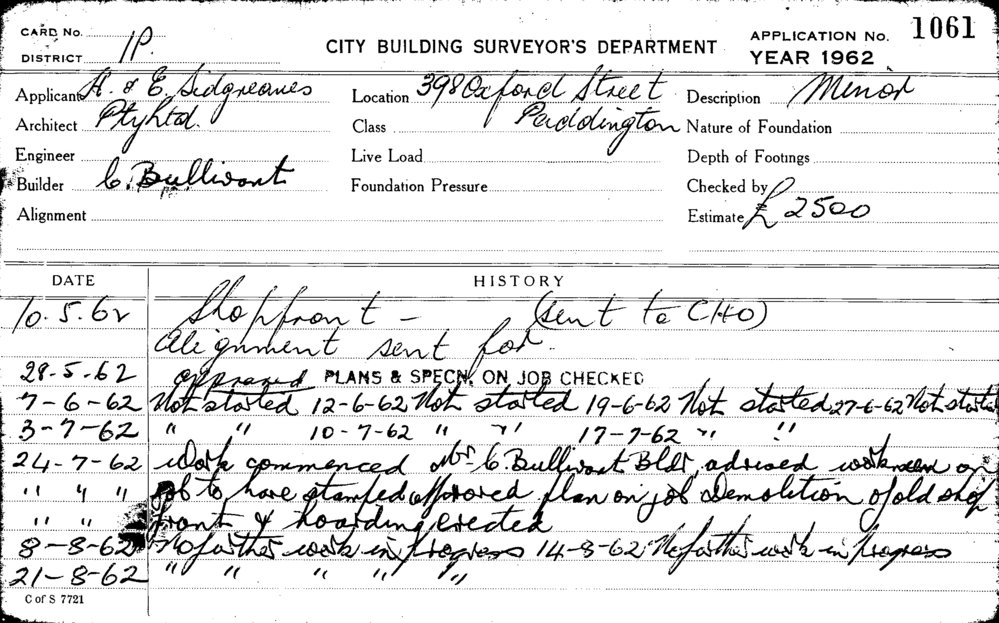 CARD No.
DISTRICT 1P.
CITY BUILDING SURVEYOR'S DEPARTMENT
APPLICATION No. 1061
YEAR 1962
Applicant H. & E. Sidgreaves
Location 398 Oxford Street
Description Minor
Architect Pty Ltd.
Class Paddington
Nature of Foundation
Engineer
Live Load
Depth of Footings
Builder C. Bullivant
Foundation Pressure
Checked by
Alignment
Estimate £ 2500
DATE HISTORY
10.5.62 Shopfront – (Sent to CHO)
Alignment sent for.
28-5-62 approved PLANS & SPECN. ON JOB CHECKED
7-6-62 Not started 12-6-62 Not started 19-6-62 Not started 27-6-62 Not started
3-7-62 " " 10-7-62 " " 17-7-62 " "
24-7-62 Work commenced Mr C. Bullivant Bldr, advised workmen on
" " " job to have stamped approved plan on job Demolition of old shop
" " front & hoarding erected
8-8-62 No further work in progress 14-8-62 No further work in progress
21-8-62 " " " " "
C of S 7721